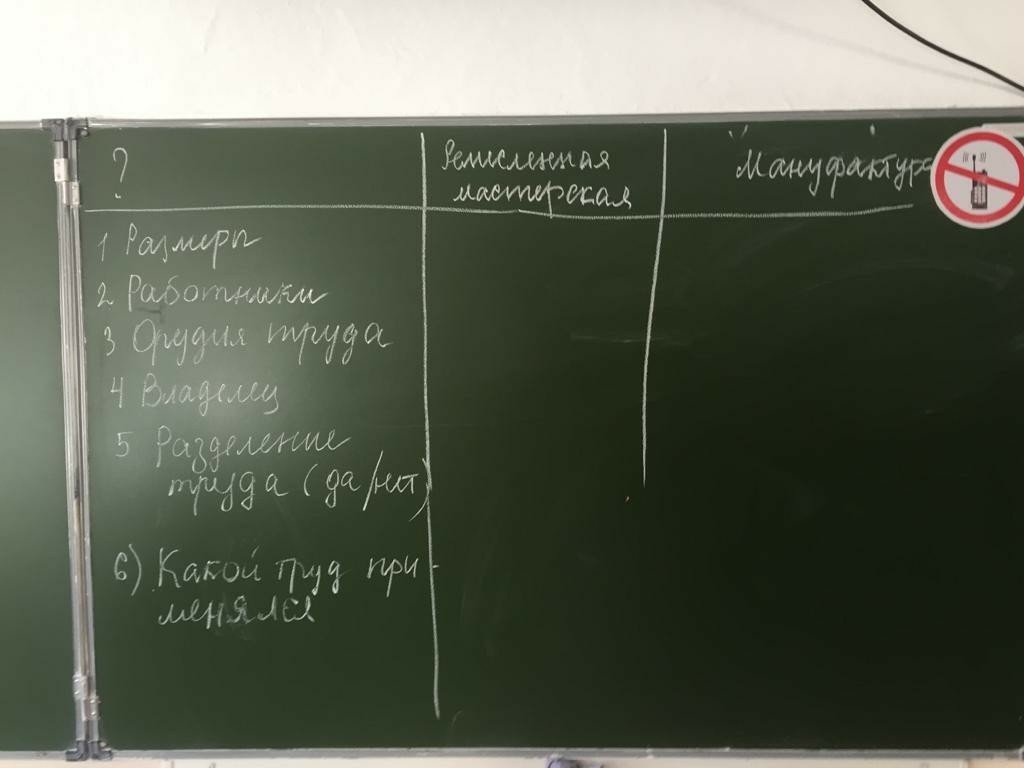 ?
Ремесленная
мастерская
Мануфактура
1 Размеры
2 Работники
3 Орудия труда
4 Владелец
5 Разделение
труда (да/нет)
6) Какой труд при-
менялся